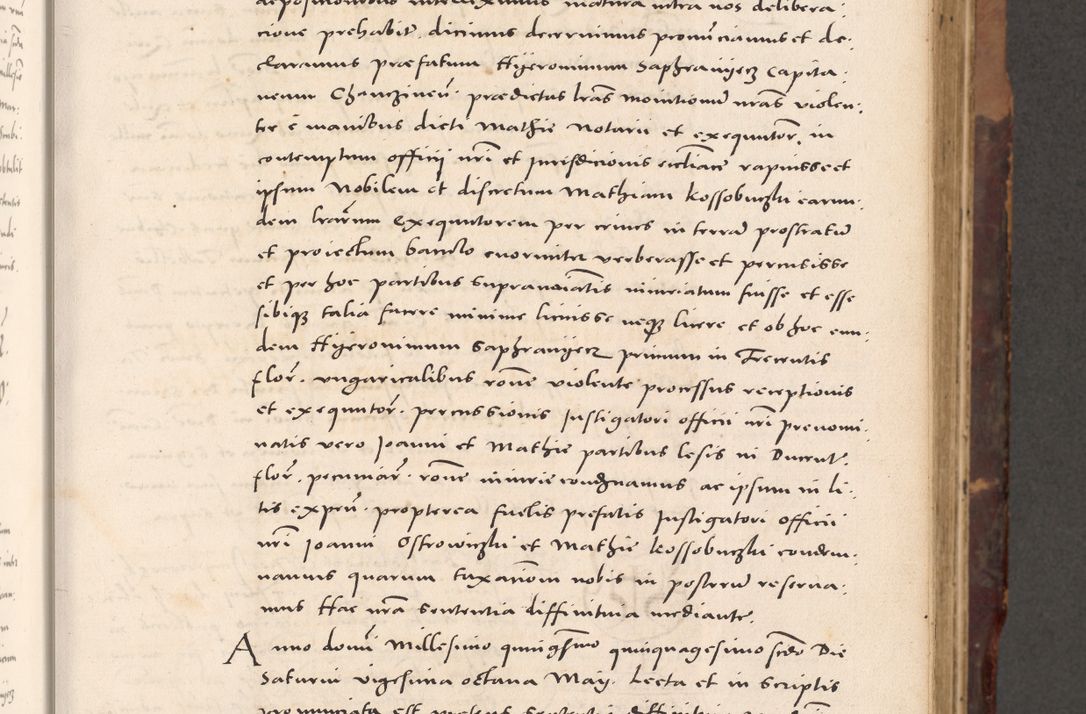 depositionibus intelleximus matura intra nos delibera:
cione prehabit. dicimus decrevimus pronūciamus et de:
claramus præfatum Hyeronimum Saphranijecz Capita:
neum Chanczineñ. prædictas lr̃as monitionū nr̃as violen:
ter ē manibus dicti Mathie Notarii et exequutor. in
contemptum officij nr̃i et jurisdicionis eccl̃iace rapuisse et
ipsum Nobilem et discretum Mathiam Kossobuczki earun:
dem lrãrum Exequutorem per crines in terrā prostratū
et proiectum baculo enormiter verberasse et percusisse
et per hoc partibus supranoiãtis iniuriatum fuisse et esse
sibiqz talia facere minime licuisse neqz licere et ob hoc eun:
dem Hyeronimum Saphranijecz primum in Trecentis
flor̃. ungaricalibus roñe violente processus receptionis
et exequutor̃. percussionis Instigatori officii nr̃i prenomi:
natis vero Joanni et Mathie partibus lesis in Ducent.
flor̃. pecuniar̃. roñe iniurie condignamus ac ipsum in li:
tis expeñ. propterea fuelis prefatis Instigatori officii
nr̃i Joanni Ostrowiczki et Mathie Kossobuczki condem:
namus quarum taxanõm nobis in posterū reserva:
mus Hac nr̃a sententia diffinitiva mediante.
Anno domĩ Millesimo quingẽsimo quinquagesimo sc̃do Die
Saturni vigesima octava Maij. Lecta et in scriptis
pronunciata est